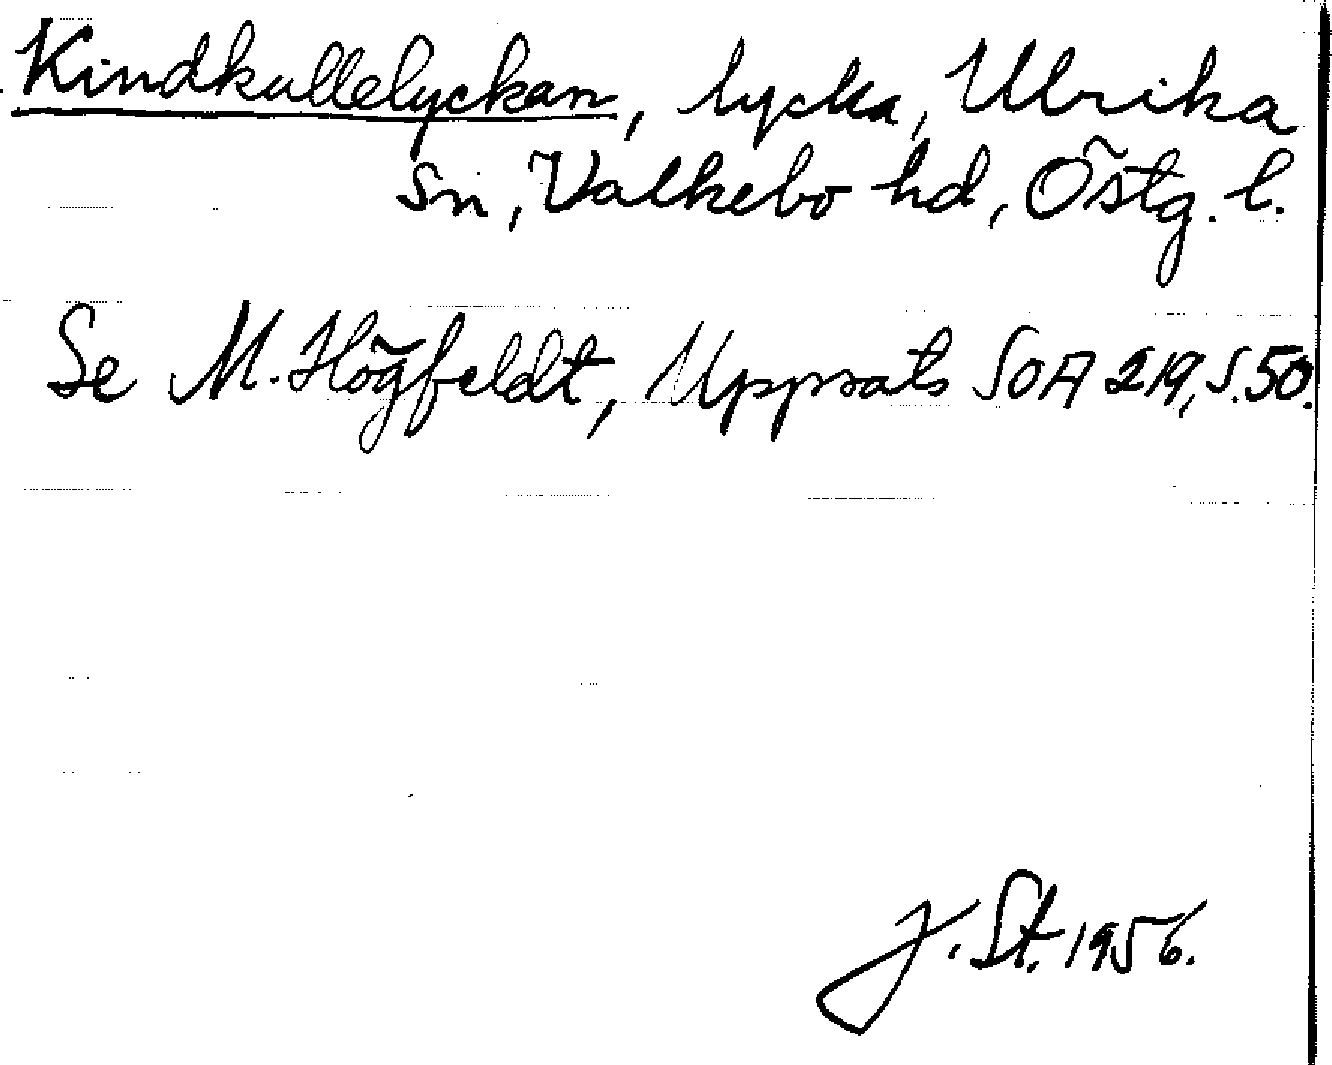 Kindkullelyckan, lycka, Ulrika
sn, Valkebo hd, Östg. l.
Se M. Högfeldt, Uppsats SOA 219, s. 50.
J. St. 1956.